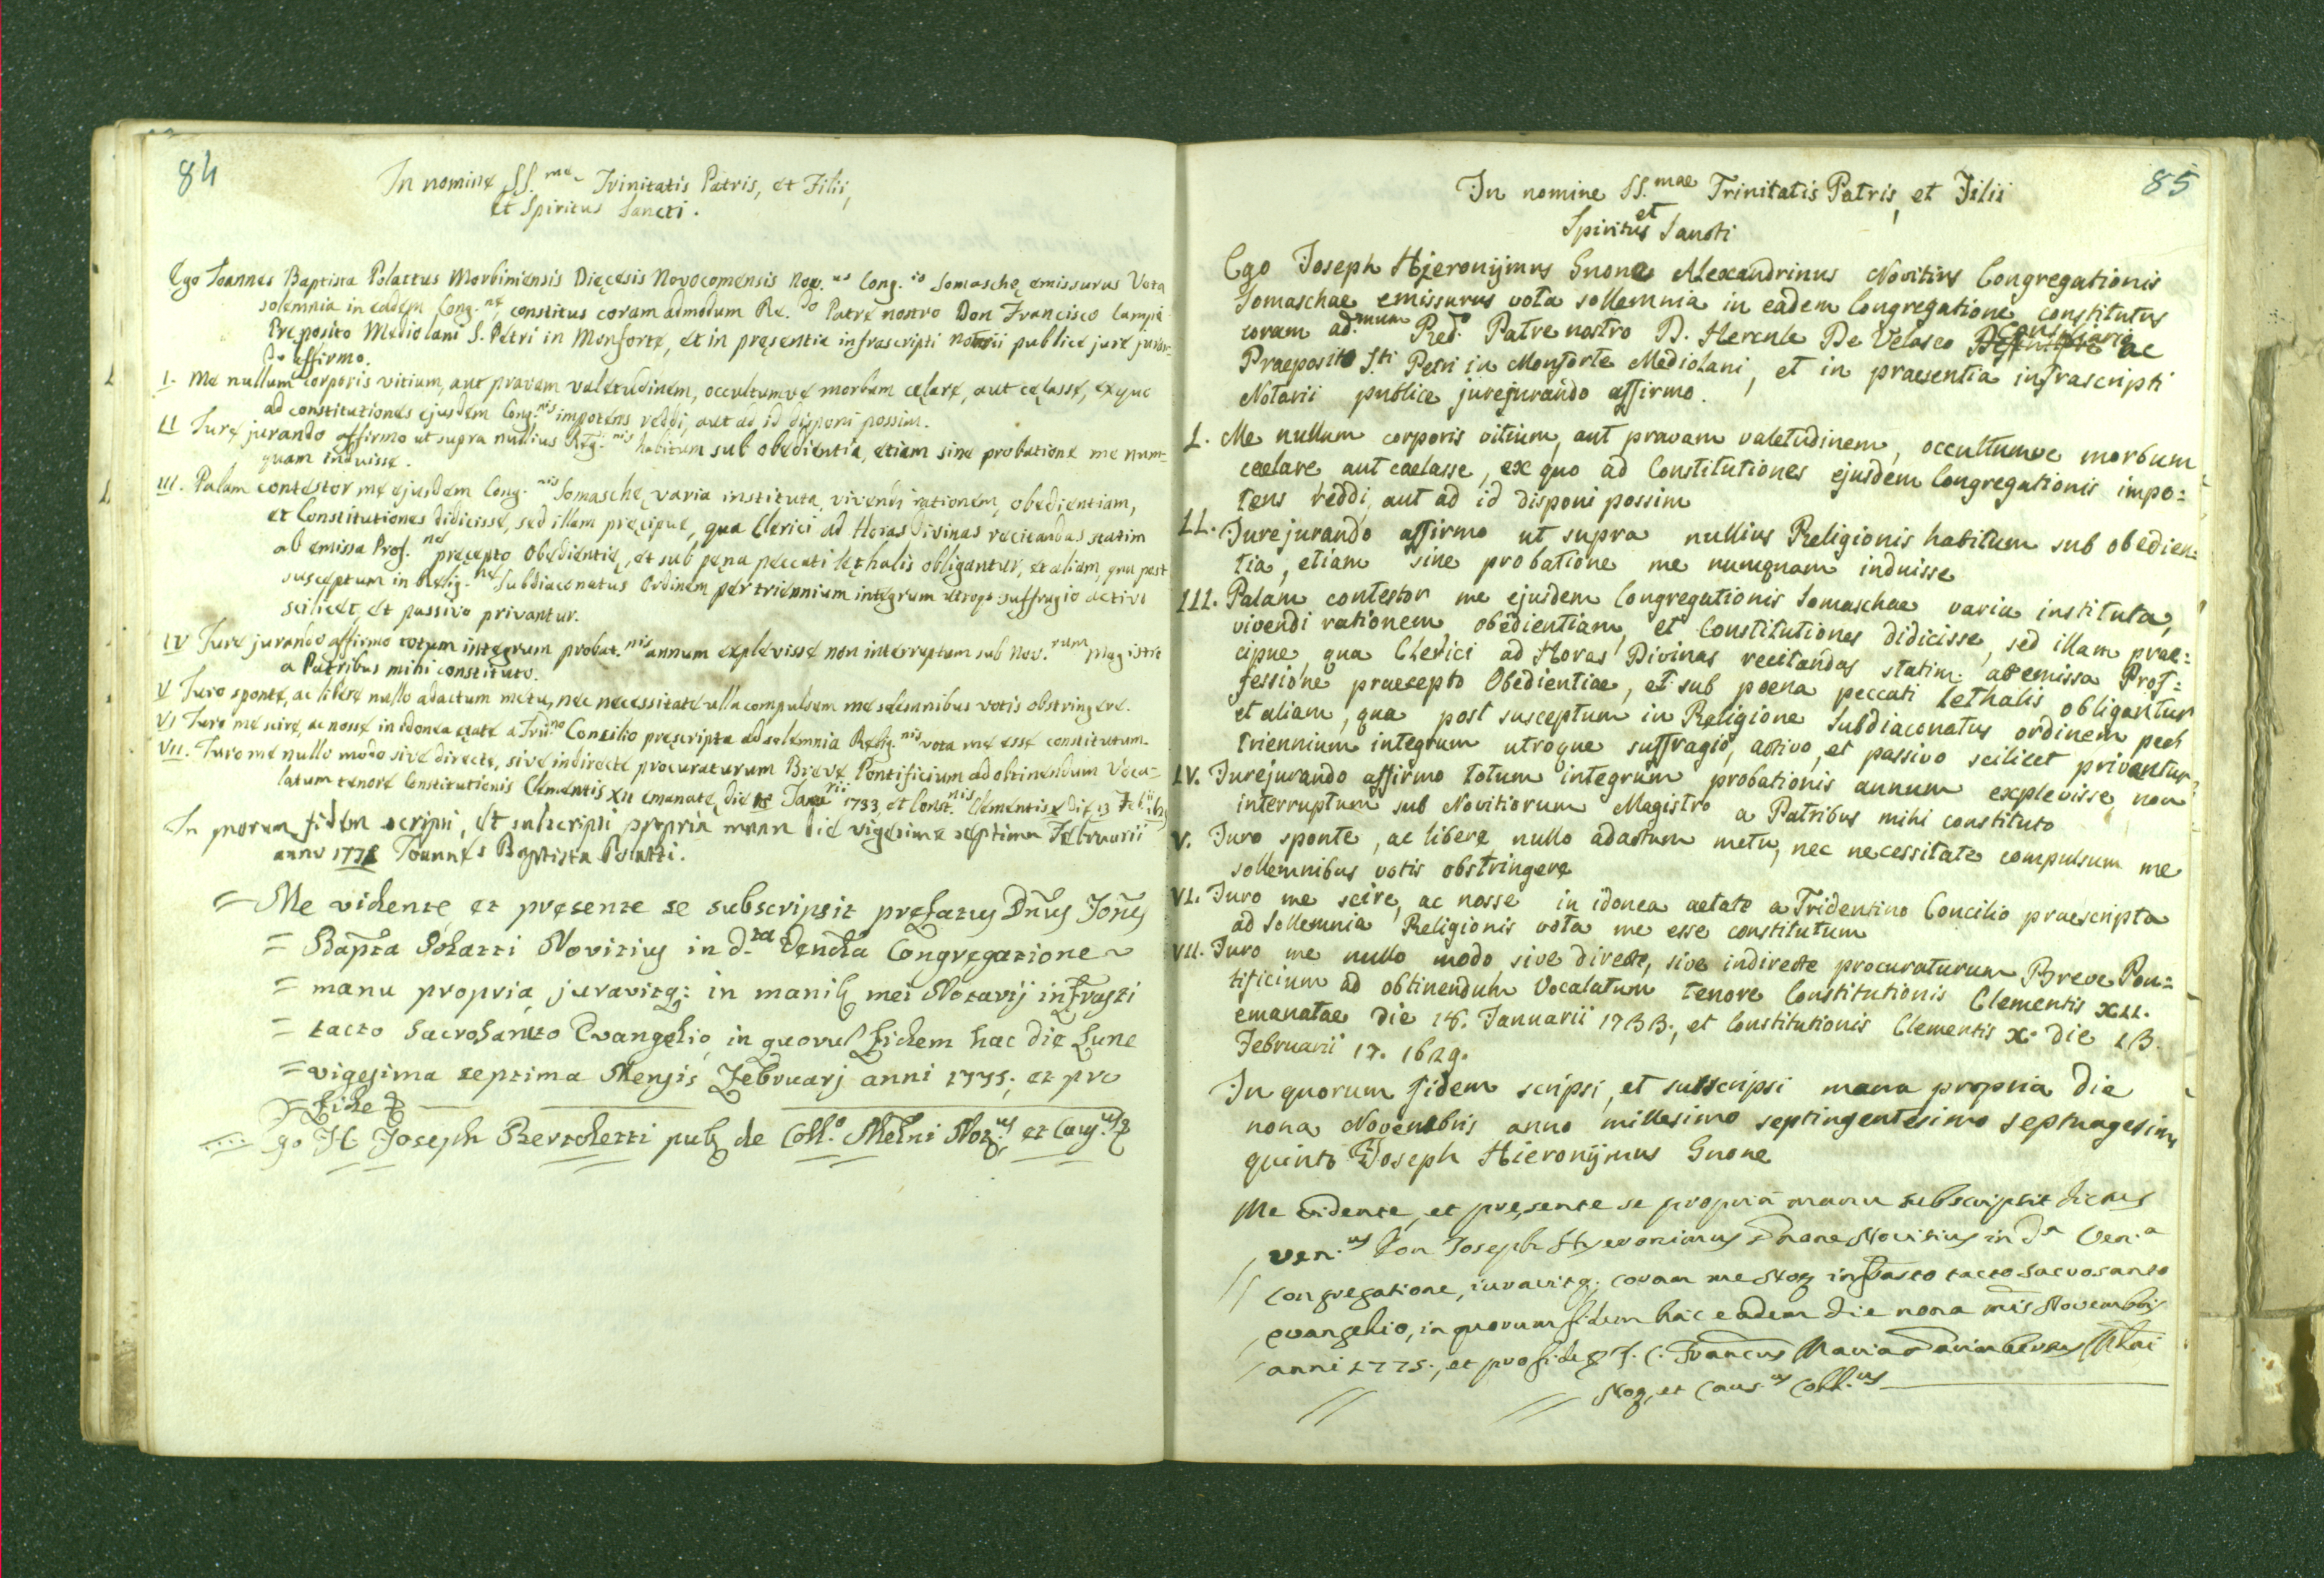 84
In nomine SS.me Trinitatis Patris, et Filii,
et Spiritus Sancti.
Ego Joannes Baptista Polattus Morbiniensis Dięcesis Novocomensis Nov.us Cong.is Somaschę emissurus Vota
solemnia in eadem Cong.ne, constitus coram admodum Re.do Patre nostro Don Francisco Lampi
Pręposito Mediolani S. Petri in Monforte, et in pręsentia infrascripti notarii publice jure juran-
do affirmo.
I. Me nullum corporis vitium, aut pravam valetudinem, occultumve morbum cęlare, aut cęlasse, ex quo
ad constitutiones ejusdem Cong.nis impotens reddi, aut ad id disponi possim.
II Jure jurando affirmo ut supra nullius Relig.nis habitum sub obedientia, etiam sine probatione me num=
quam induisse.
III. Palam contestor me ejusdem Cong.nis Somaschę varia instituta, vivendi rationem, obedientiam,
et Constitutiones didicisse, sed illam pręcipue, qua Clerici ad Horas Divinas recitandas statim
ab emissa Prof.ne pręcepto Obedientię, et sub pęna peccati lethalis obligantur, et aliam, qua post
susceptum in Relig.ne Subdiaconatus Ordinem per triennium integrum utroq. suffragio activo
scilicet, et passivo privantur.
IV Jure jurando affirmo totum integrum probat.nis annum explevisse non interruptum sub Nov.rum Magistro
a Patribus mihi constituto.
V Juro sponte, ac libere nullo adactum metu, nec necessitate ulla compulsum me solemnibus votis obstringere.
VI Juro me scire, ac nosse in idonea ętate a Trid.no Concilio pręscripta ad solemnia Relig.nis vota me esse constitutum.
VII. Juro me nullo modo sive directe, sive indirecte procuraturum Breve Pontificium ad obtinendum Voca=
latum tenore Constitutionis Clementis XII emanatę die 18 Janurii 1733 et Const.nis Clementis X die 13 Feb.
In quorum fidem scripsi, et subscripsi propria manu die vigesima septima Februarii
anno 1775 Joannes Baptista Polatti.
= Me vidente, et pręsente se subscripsit pręfatus Dnus Jones
= Bapta Polatti Novitius in d.ta Venda Congregatione
= manu propria, juravitq; in manib mei Notarij infrasti
= tacto Sacrosancto Evangelio, in quorum fidem hac die Lune
= vigesima septima Mensis Februarj anni 1775; et pro
= fide
Ego J.C. Joseph Bertoletti pub de Coll.o Melni Not.us et Caus.us
85
In nomine SS.mae Trinitatis Patris, et Filii
et
Spiritus Sancti
Ego Joseph Hjeronÿmus Gnone Alexandrinus Novitius Congregationis
Somaschae emissurus vota sollemnia in eadem Congregatione constitutus
coram ad.mum Red.o Patre nostro D. Hercule De Velasco Consiliario ac
Praeposito S.ti Petri in Monforte Mediolani, et in praesentia infrascripti
Notarii publice jurejurando affirmo.
I. Me nullum corporis vitium, aut pravam valetudinem, occultumve morbum
caelare aut caelasse, ex quo ad Constitutiones ejusdem Congregationis impo=
tens reddi, aut ad id disponi possim
II. Jurejurando affirmo ut supra nullius Religionis habitum sub obedien=
tia, etiam sine probatione me numquam induisse
III. Palam contestor me ejusdem Congregationis Somaschae varia instituta,
vivendi rationem obedientiam, et Constitutiones didicisse, sed illam prae=
cipue, qua Clerici ad Horas Divinas recitandas statim ab emissa Prof=
fessione praecepto Obedientiae, et sub poena peccati lethalis obligantur
et aliam, qua post susceptum in Religione Subdiaconatus ordinem per
triennium integrum utroque suffragio, activo, et passivo scilicet privantur
IV. Jurejurando affirmo totum integrum probationis annum explevisse non
interruptum sub Novitiorum Magistro a Patribus mihi constituto
V. Juro sponte, ac libere nullo adactum metu, nec necessitate compulsum me
sollemnibus votis obstringere
VI. Juro me scire, ac nosse in idonea aetate a Tridentino Concilio praescripta
ad sollemnia Religionis vota me esse constitutum
VII. Juro me nullo modo, sive directe, sive indirecte procuraturum Breve Pon=
tificium ad obtinendum Vocalatum tenore Constitutionis Clementis XII.
emanatae die 18. Januarii 1733., et Constitutionis Clementis X. die 13.
Februarii 17. 1629.
In quorum fidem scripsi, et subscripsi manu propria die
nona Novembris anno millesimo septingentesimo septuagesimo
quinto Joseph Hieronÿmus Gnone
Me vidente, et pręsente se propria manu subscripsit dictus
ven.us Don Joseph Hyeronimus Gnone Novitius in d.a Ven.a
Congregatione, iuravitq. coram me Not infrasto tacto Sacrosanto
evangelio, in quorum fidem hac eadem die nona mis Novembris
anni 1775., et pro fide J. C. Francus Maria
Not, et Caus.us Coll.us